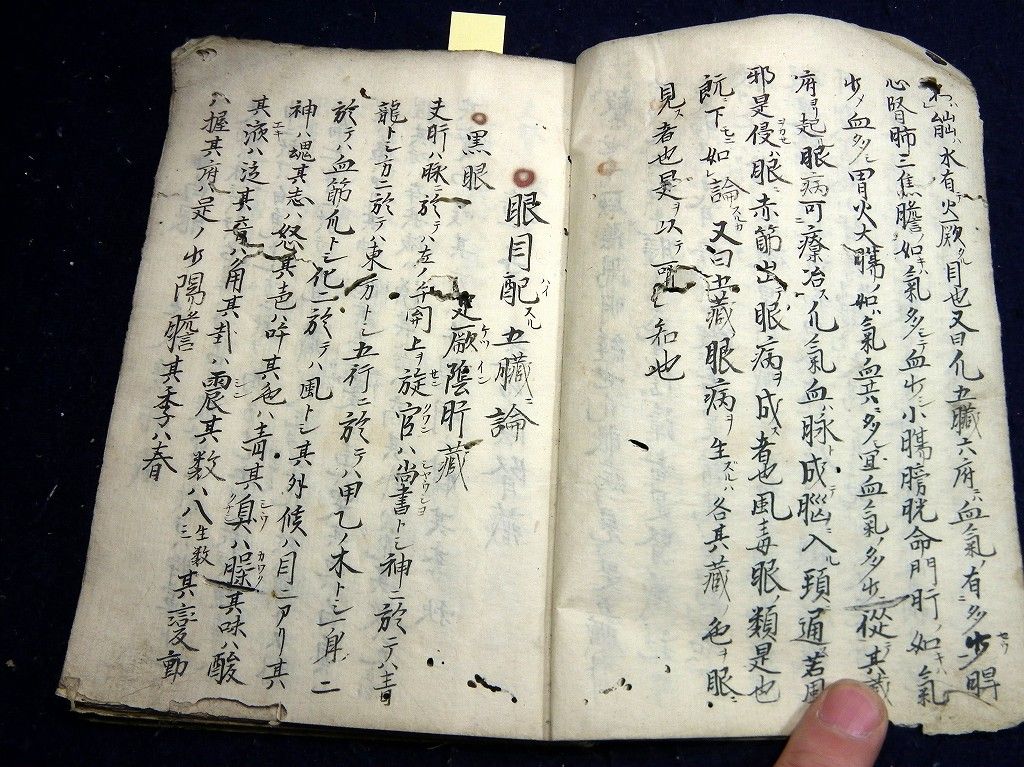 心腎肺三焦膽ノ如キハ氣多シテ血少シ小膓膀胱命門肝ノ如キハ氣
少ノ血多シ胃火大膓ノ如ハ氣血共ニ多シ宜血氣ノ多少ニ從其藏
府ヨリ起ル眼病可療治ス凡氣血ハ脉ト成テ腦ニ入ル頚ニ通若風
邪是侵ハ眼ニ赤筋出ノ眼病ヲ成ス者也風毒眼ノ類是也
下モニ如論スルカ又曰五藏眼病ヲ生スルハ各其藏ノ色ヲ眼ニ
見ス者也是ヲ以テ可知也
眼目配スル五臓ニ論
黒眼 足厥陰肝藏
夫肝ハ脉ニ於テハ左ノ手関上ヲ旋官ハ尚書トシ神ニ於テハ青
龍トシ方ニ於テハ東方トシ五行ニ於テハ甲乙ノ木トシ身ニ
於テハ血筋爪トシ化ニ於テハ風トシ其外候ハ目ニアリ其
神ハ魂其志ハ怒其声ハ呼其色ハ青其臭ハ臊其味ハ酸
其液ハ泣其音ハ角其卦ハ震其数ハ八生数三其変動
ハ握其府ハ足ノ少陽膽其季ハ春